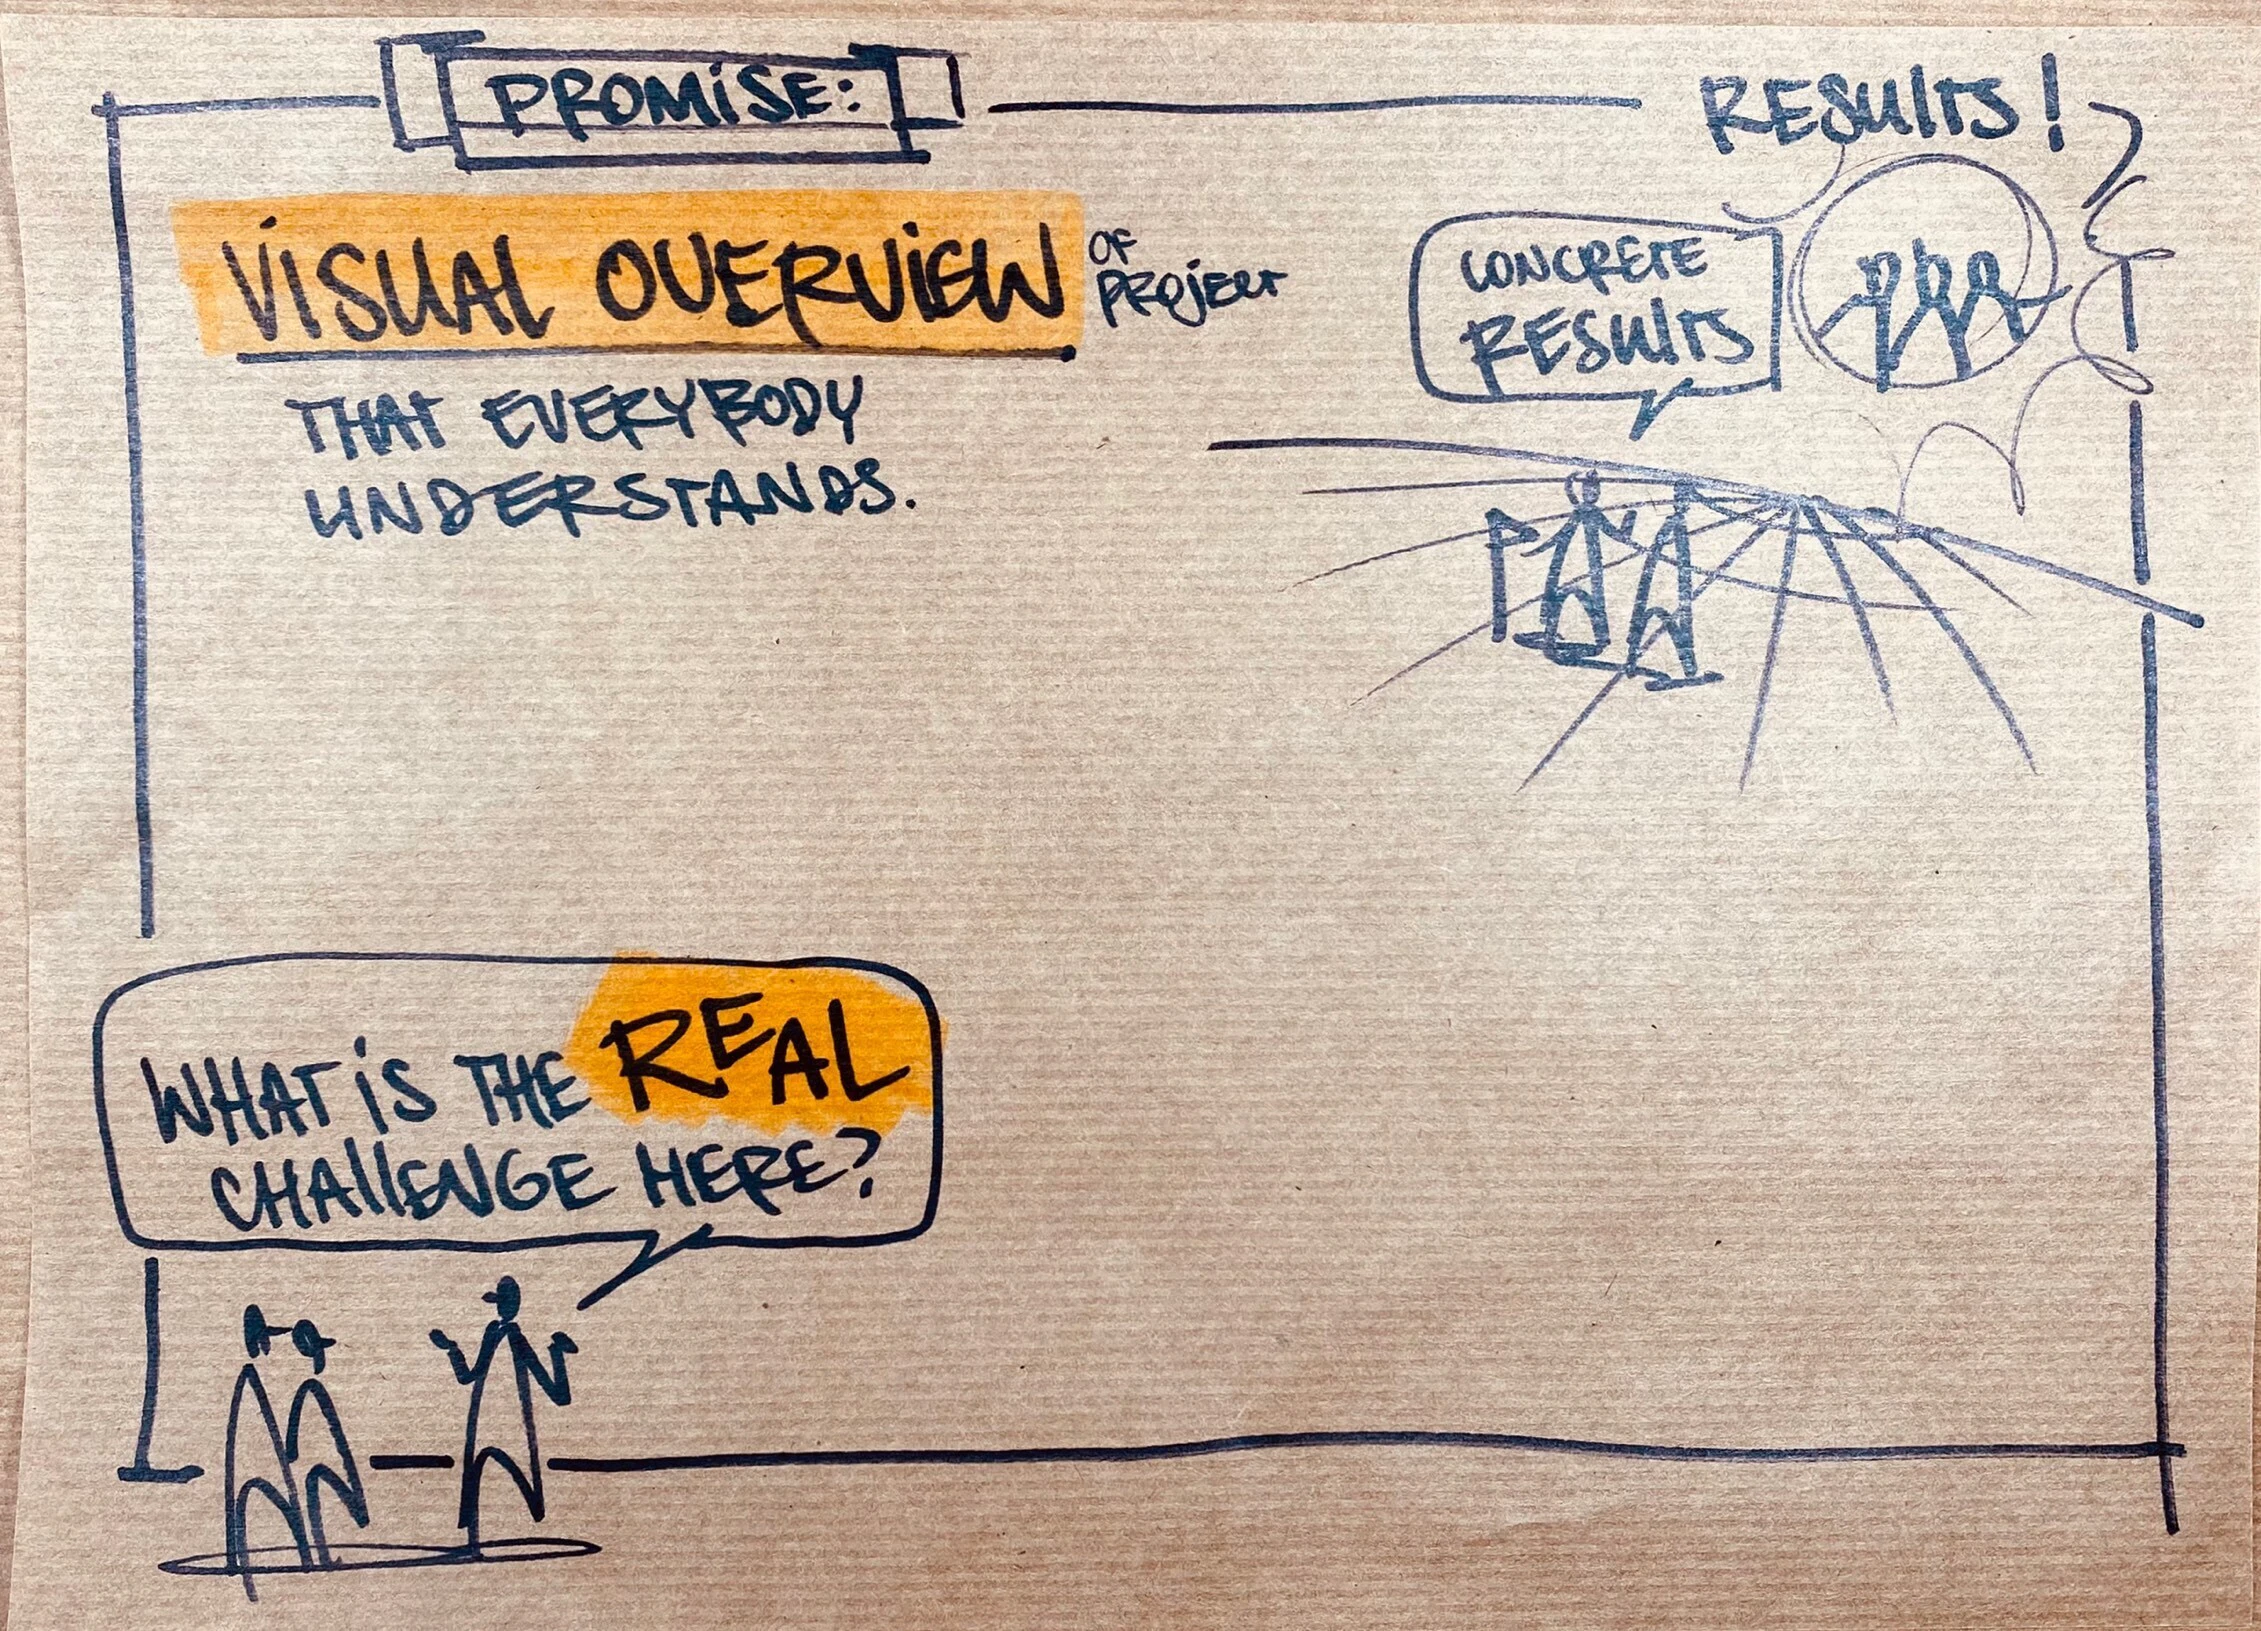 PROMISE:
RESULTS!
VISUAL OVERVIEW OF PROJECT
THAT EVERYBODY
UNDERSTANDS.
CONCRETE
RESULTS
WHAT IS THE REAL
CHALLENGE HERE?